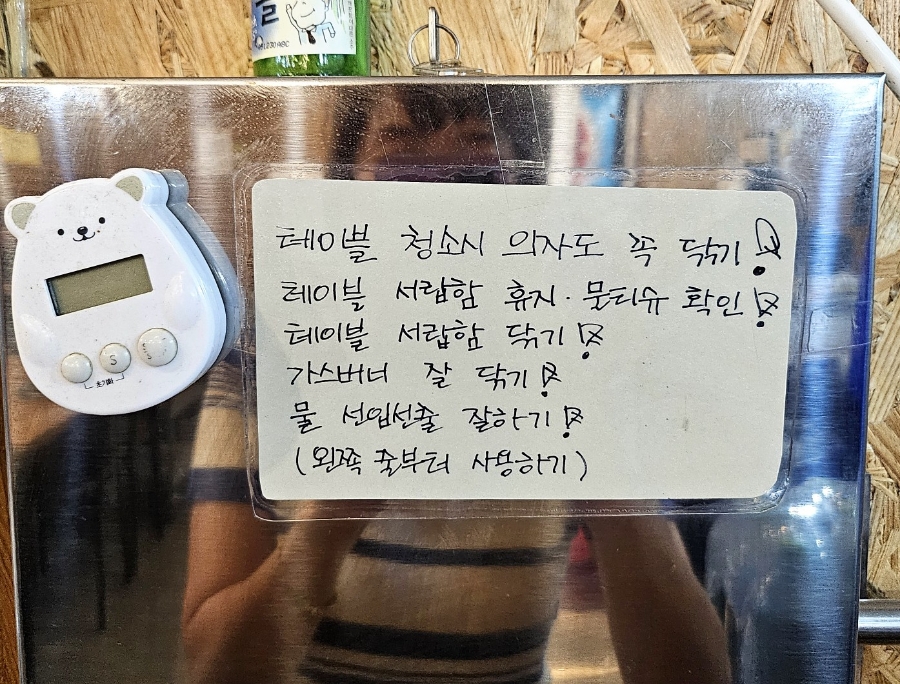 테이블 청소시 의자도 꼭 닦기!
테이블 서랍함 휴지·물티슈 확인!
테이블 서랍함 닦기!
가스버너 잘 닦기!
물 선입선출 잘하기!
(왼쪽 줄부터 사용하기)
S
초기화